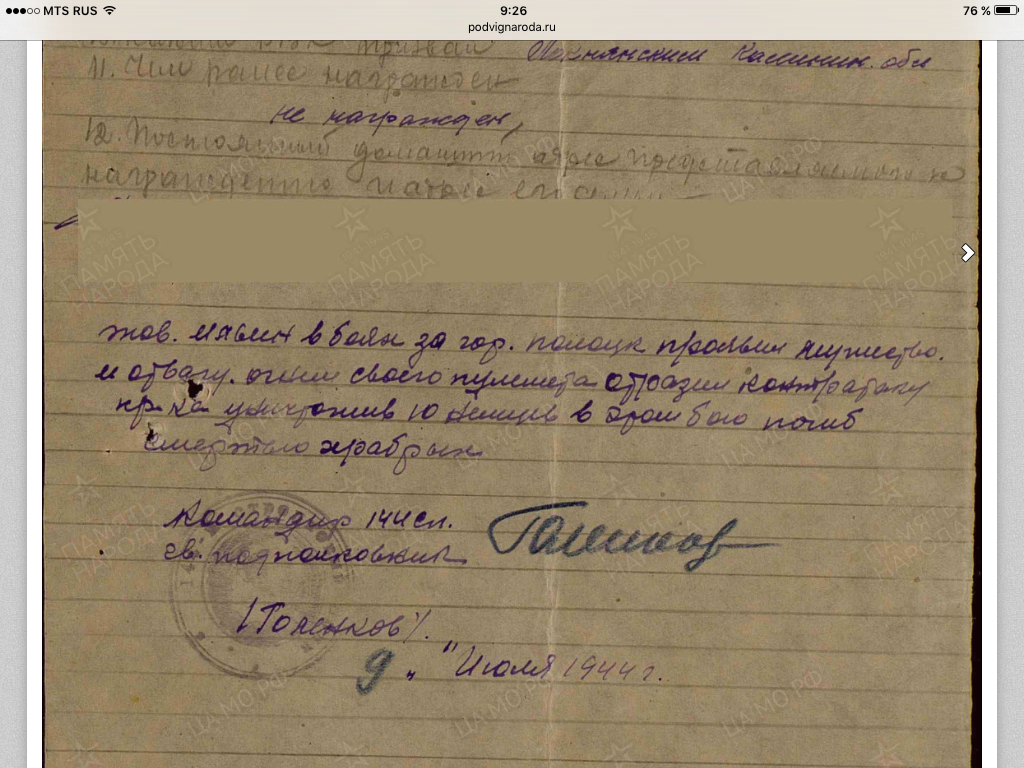 MTS RUS 9:26 76 %
podvignaroda.ru
призван Локнянским Калинин. обл
11. Чем ранее награжден
не награжден,
12. Постоянный домашний адрес представляемого к
награждению и адрес его
тов. в боях за гор. полоцк проявил мужество.
и отвагу. огнем своего пулемета отразил контратаку
пр-ка уничтожив 10 немцев в этом бою погиб
смертью храбрых
Командир 144 сп.
гв. подполковник
/Голенков/.
9 „ " Июля 1944 г.
ПАМЯТЬ НАРОДА
ЦА МО РФ